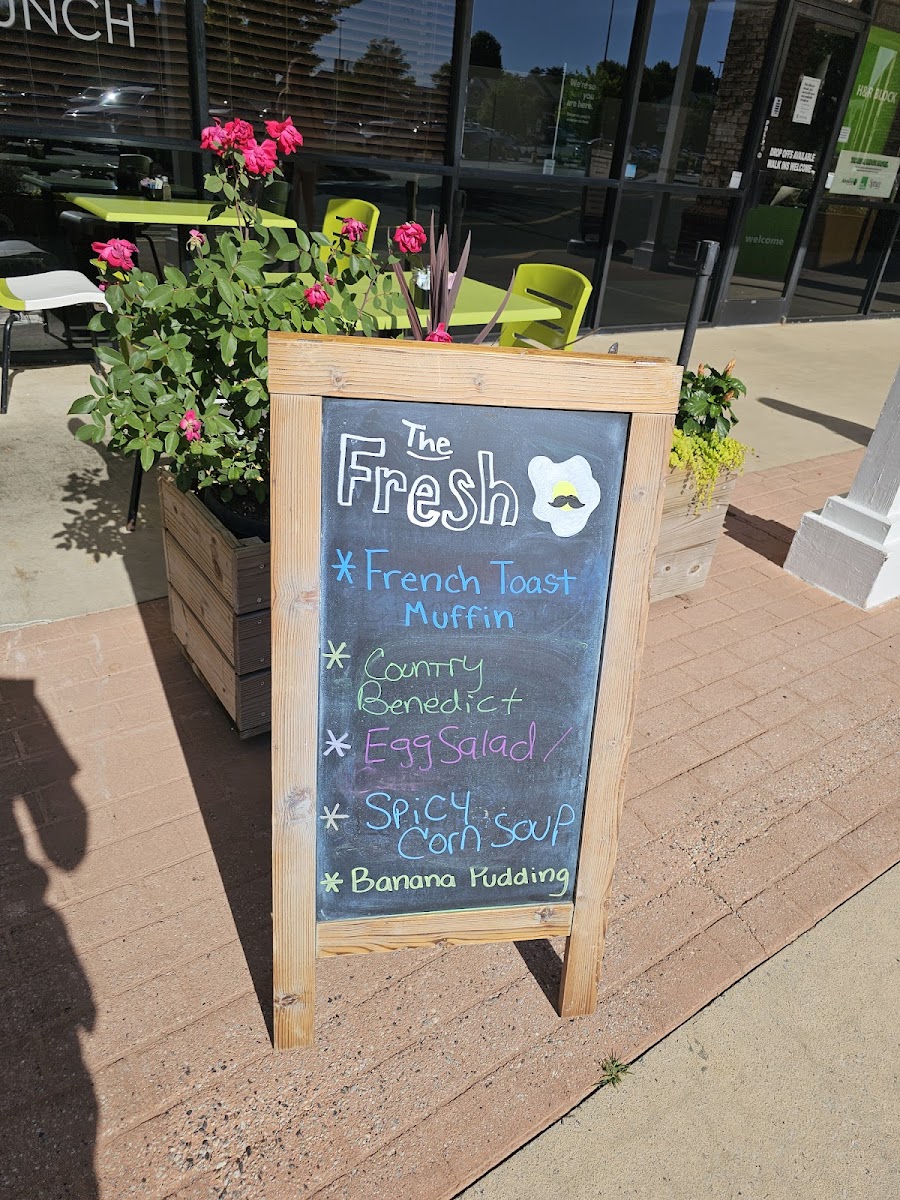 UNCH
We're so
you
are here.
H&R BLOCK
DROP OFFS AVAILABLE
WALK INS WELCOME
welcome
The
Fresh
* French Toast
Muffin
* Country
Benedict
* Egg Salad /
* Spicy
Corn Soup
* Banana Pudding